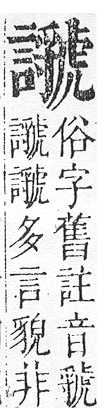 謕
俗字舊註音號
謕謕多言貌非